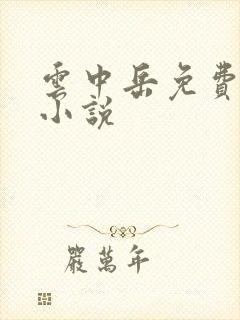 雲中岳免費
小說
嚴萬年